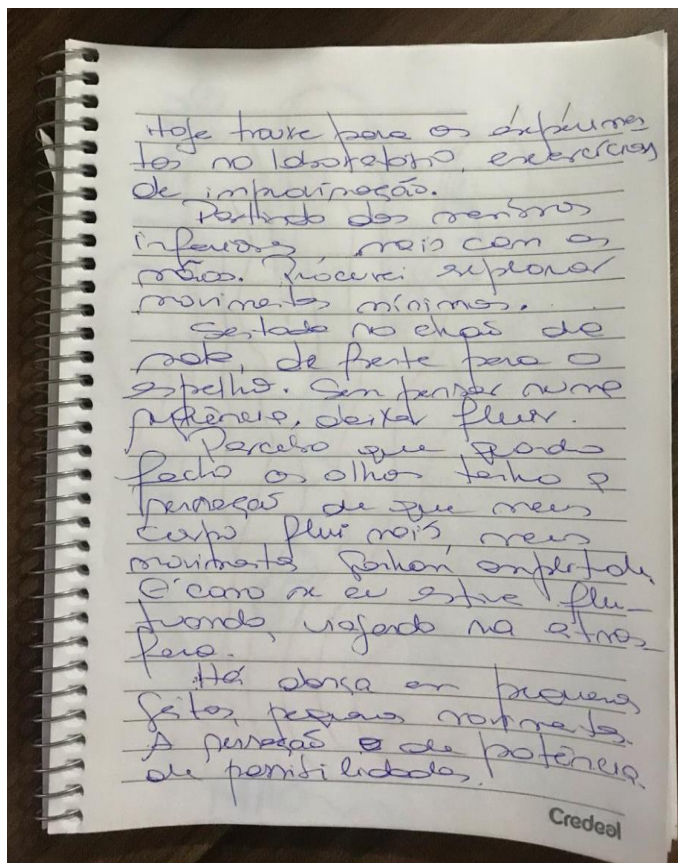 Hoje trouxe para os experimen
tos no laboratório, exercícios
de improvisação.
Partindo dos membros
inferiores mais com as
mãos. Procurei explorar
movimentos mínimos.
Sentado no chão de
sala, de frente para o
espelho. Sem pensar numa
sequência, deixar fluir.
Percebo que quando
fecho os olhos tenho a
sensação de que meu
corpo flui mais, meus
movimentos ganham amplitude.
É como se eu estive flu-
tuando, viajando na atmos-
fera.
Há dança em pequenos
gestos, pequenos movimentos.
A sensação é de potência
de possibilidades.
Credeal